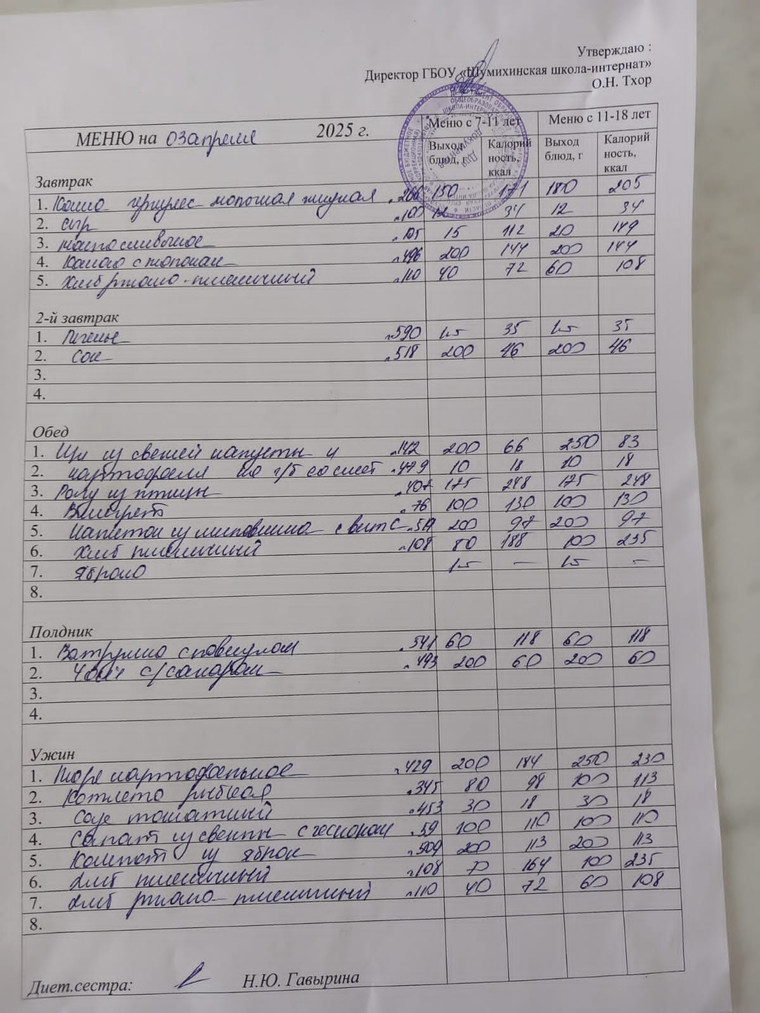 Утверждаю :
Директор ГБОУ «Шумихинская школа-интернат»
О.Н. Тхор
МЕНЮ на 03 апреля 2025 г. Меню с 7-11 лет Меню с 11-18 лет
Выход блюд, г Калорий ность, ккал Выход блюд, г Калорий ность, ккал
Завтрак
1. Каша геркулес молочная жидкая .266 150 171 180 205
2. сыр .100 12 34 12 34
3. масло сливочное .105 15 112 20 149
4. Какао с молоком .496 200 144 200 144
5. хлеб ржано-пшеничный .110 40 72 60 108
2-й завтрак
1. Печенье .590 15 35 15 35
2. Сок .518 200 46 200 46
3.
4.
Обед
1. Щи из свежей капусты и .142 200 66 250 83
2. картофеля на к/б со смет .479 10 18 10 18
3. Рагу из птицы .407 175 248 175 248
4. Винегрет .76 100 130 100 130
5. Напиток из шиповника с вит С .519 200 97 200 97
6. хлеб пшеничный .108 80 188 100 235
7. яблоко 15 — 15 —
8.
Полдник
1. Ватрушка с повидлом .541 60 118 60 118
2. Чай с/сахаром .493 200 60 200 60
3.
4.
Ужин
1. Пюре картофельное .429 200 184 250 230
2. Котлета рыбная .345 80 98 100 113
3. Соус томатный .453 30 18 30 18
4. Салат из свеклы с чесноком .59 100 110 100 110
5. Компот из яблок .509 200 113 200 113
6. хлеб пшеничный .108 70 164 100 235
7. хлеб ржано-пшеничный .110 40 72 60 108
8.
Диет.сестра: Н.Ю. Гавырина